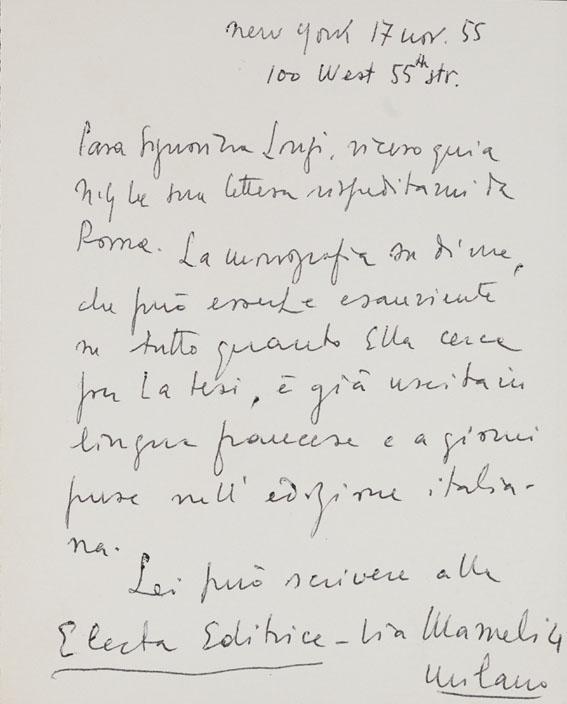 New York 17 nov. 55
100 West 55th str.
Cara Signorina Longi, ricevo qui a
N.Y. la sua lettera rispeditami da
Roma. La monografia su di me,
che può esserLe esauriente
su tutto quanto Ella cerca
per la tesi, è già uscita in
lingua francese e a giorni
pure nell' edizione italia-
na.
Lei può scrivere alla
Electa Editrice - Via Mameli 4
Milano